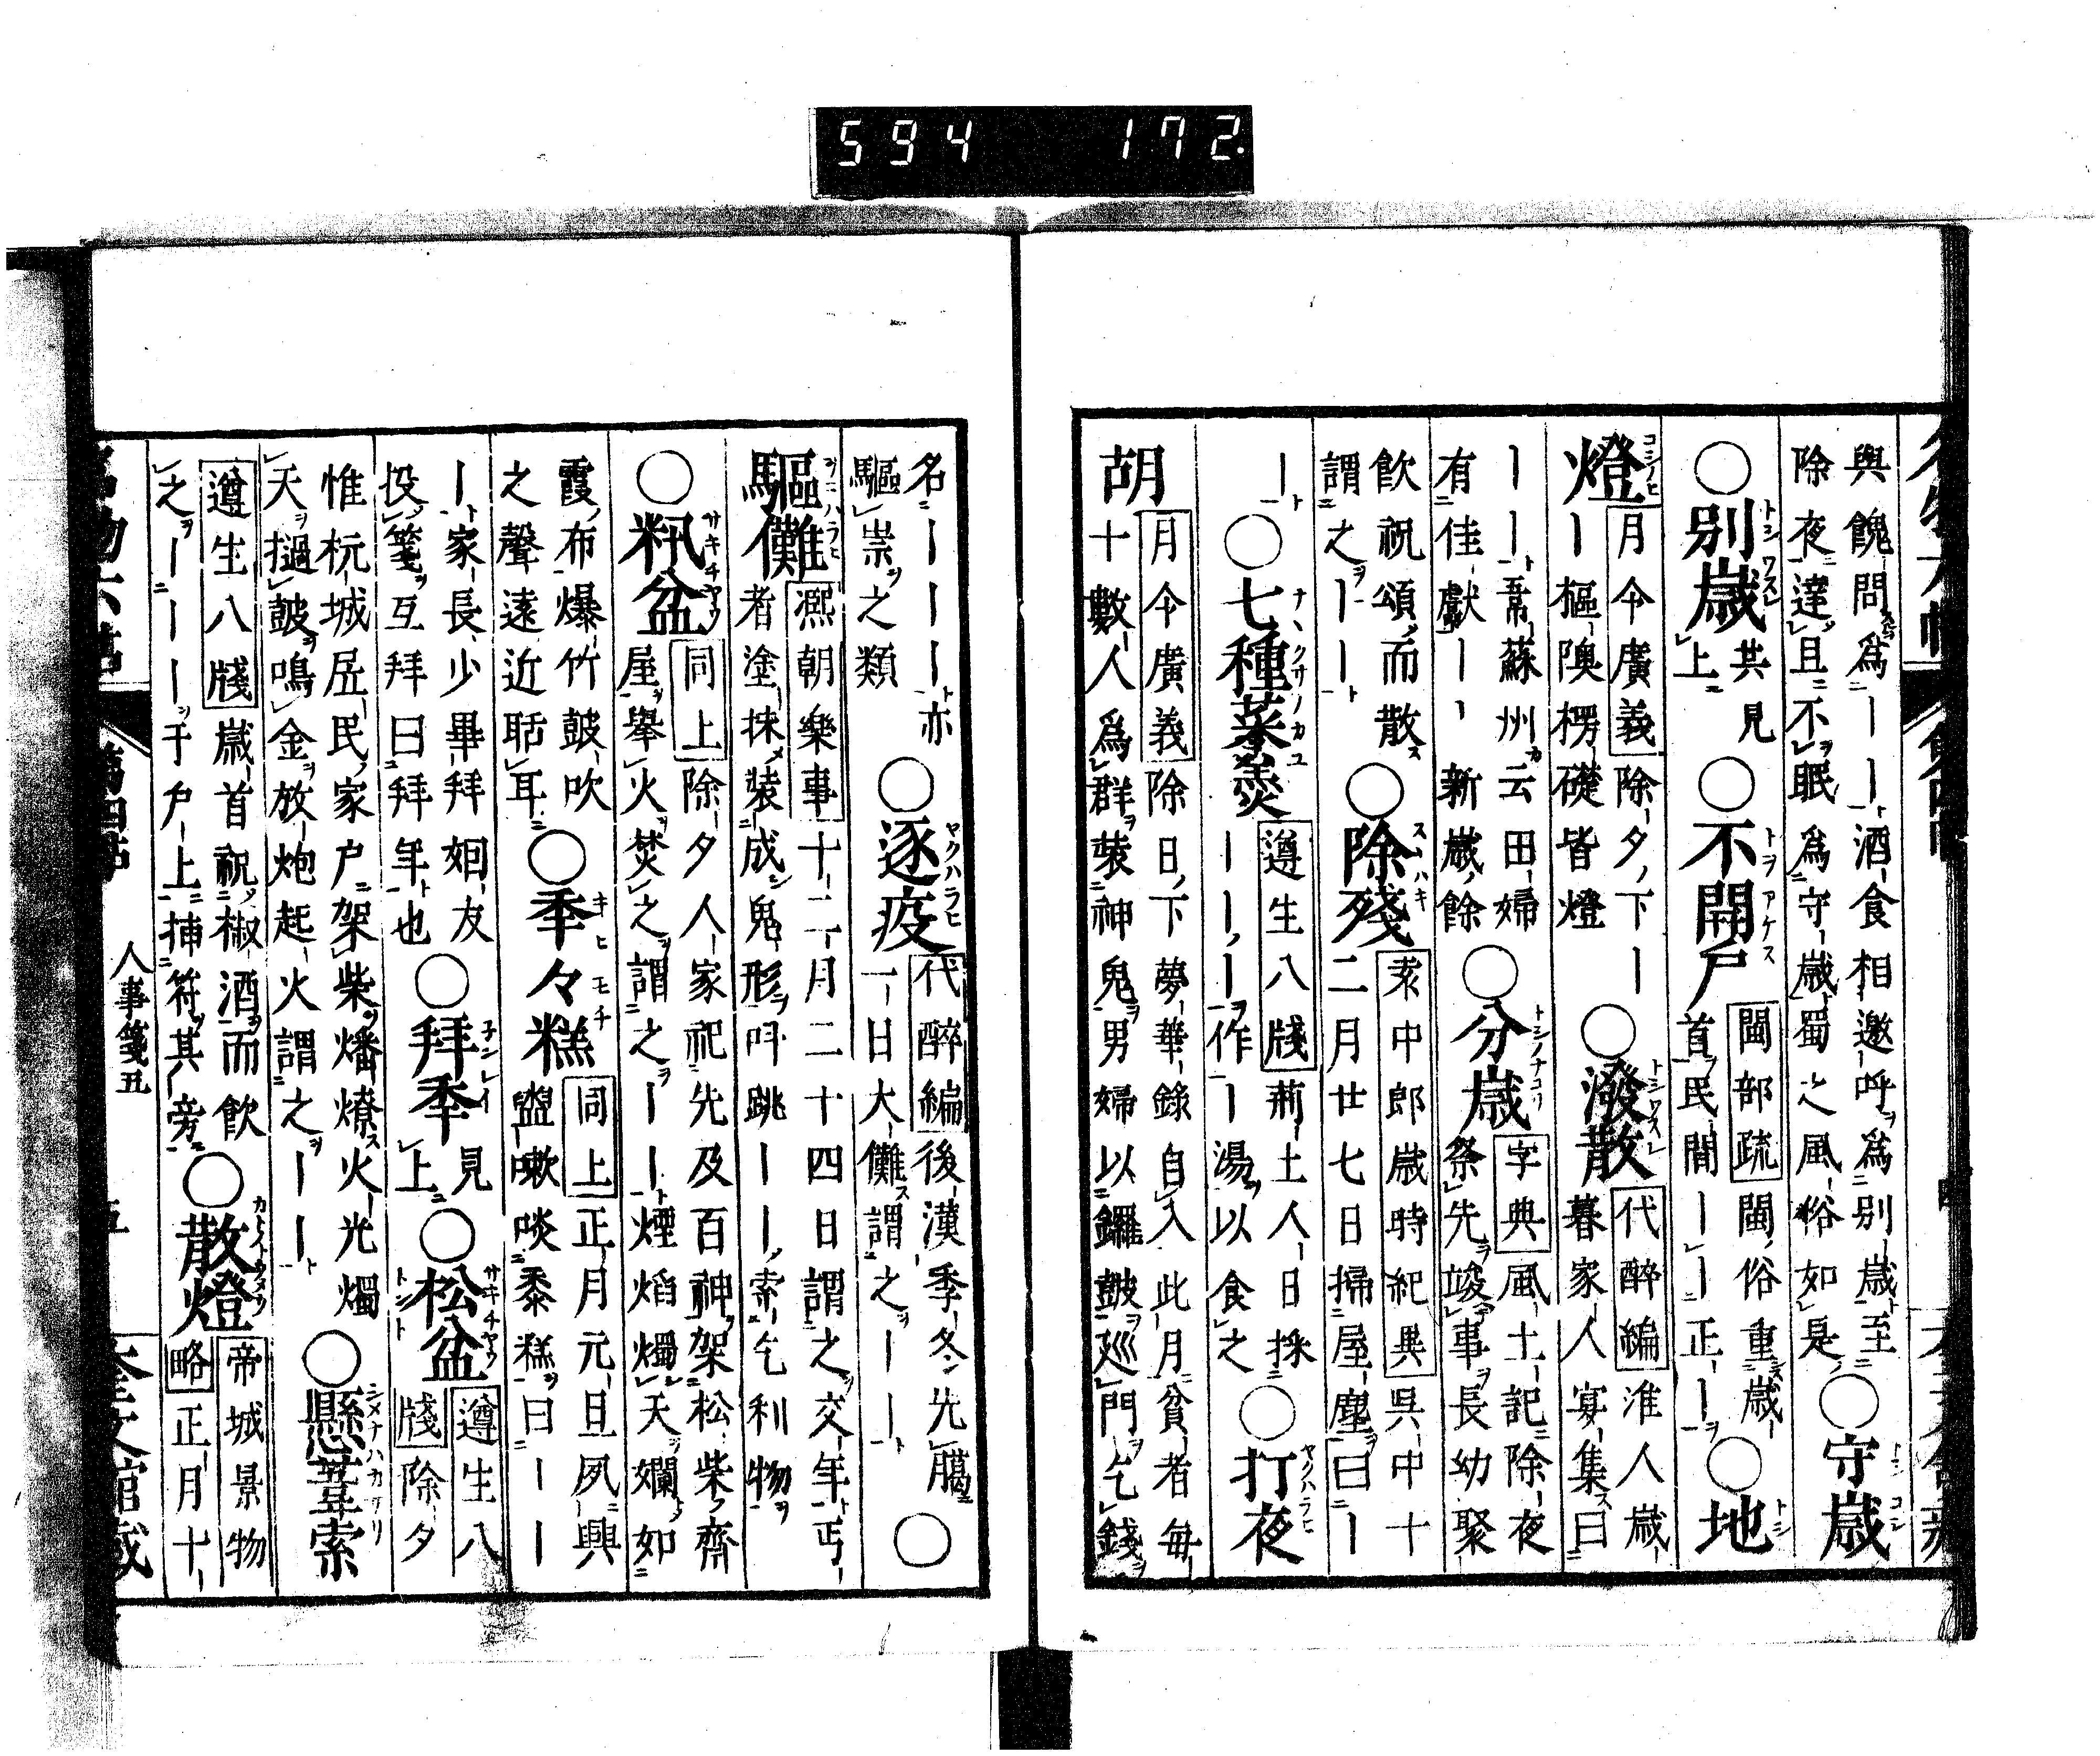 594 172.
與餽問爲——酒食相邀呼爲別歲至
除夜達旦不眠爲守歲蜀之風俗如是○守歲
○別歲共見上○不開戶閩部疏閩俗重歲
首民間——正—○地
燈月令廣義除夕下—
—樞隩楞礎皆燈○潑散代醉編淮人歲
暮家人宴集曰
——
蘇州云田婦
有佳獻——新歲餘○分歲字典風土記除夜
祭先竣事長幼聚
飲祝頌而散
謂之——○除殘袁中郎歲時紀異吳中十
二月廿七日掃屋塵曰—
—○七種菜羹遵生八牋荊土人日採
———作—湯以食之○打夜
胡月令廣義除日下夢華錄自入此月貧者每
十數人爲群裝神鬼男婦以鑼鼓巡門乞錢
名————亦
驅祟之類○逐疫代醉編後漢季冬先臘
一日大儺謂之——○
驅儺凞朝樂事十二月二十四日謂之交年丐
者塗抹裝成鬼形叫跳——索乞利物
○籸盆同上除夕人家祀先及百神架松柴齊
屋舉火焚之謂之——煙焰燭天爛如
霞布爆竹鼓吹
之聲遠近聒耳○年々糕同上正月元旦夙興
盥嗽啖黍糕曰——
—家長少畢拜姻友
投箋互拜曰拜年也○拜年見上○松盆遵生八
牋除夕
惟杭城居民家戶架柴燔燎火光燭
天撾鼓鳴金放炮起火謂之——○懸葦索
遵生八牋歲首祝椒酒而飲
之———于戶上挿符其旁○散燈帝城景物
略正月十
人事箋五
奎文館藏